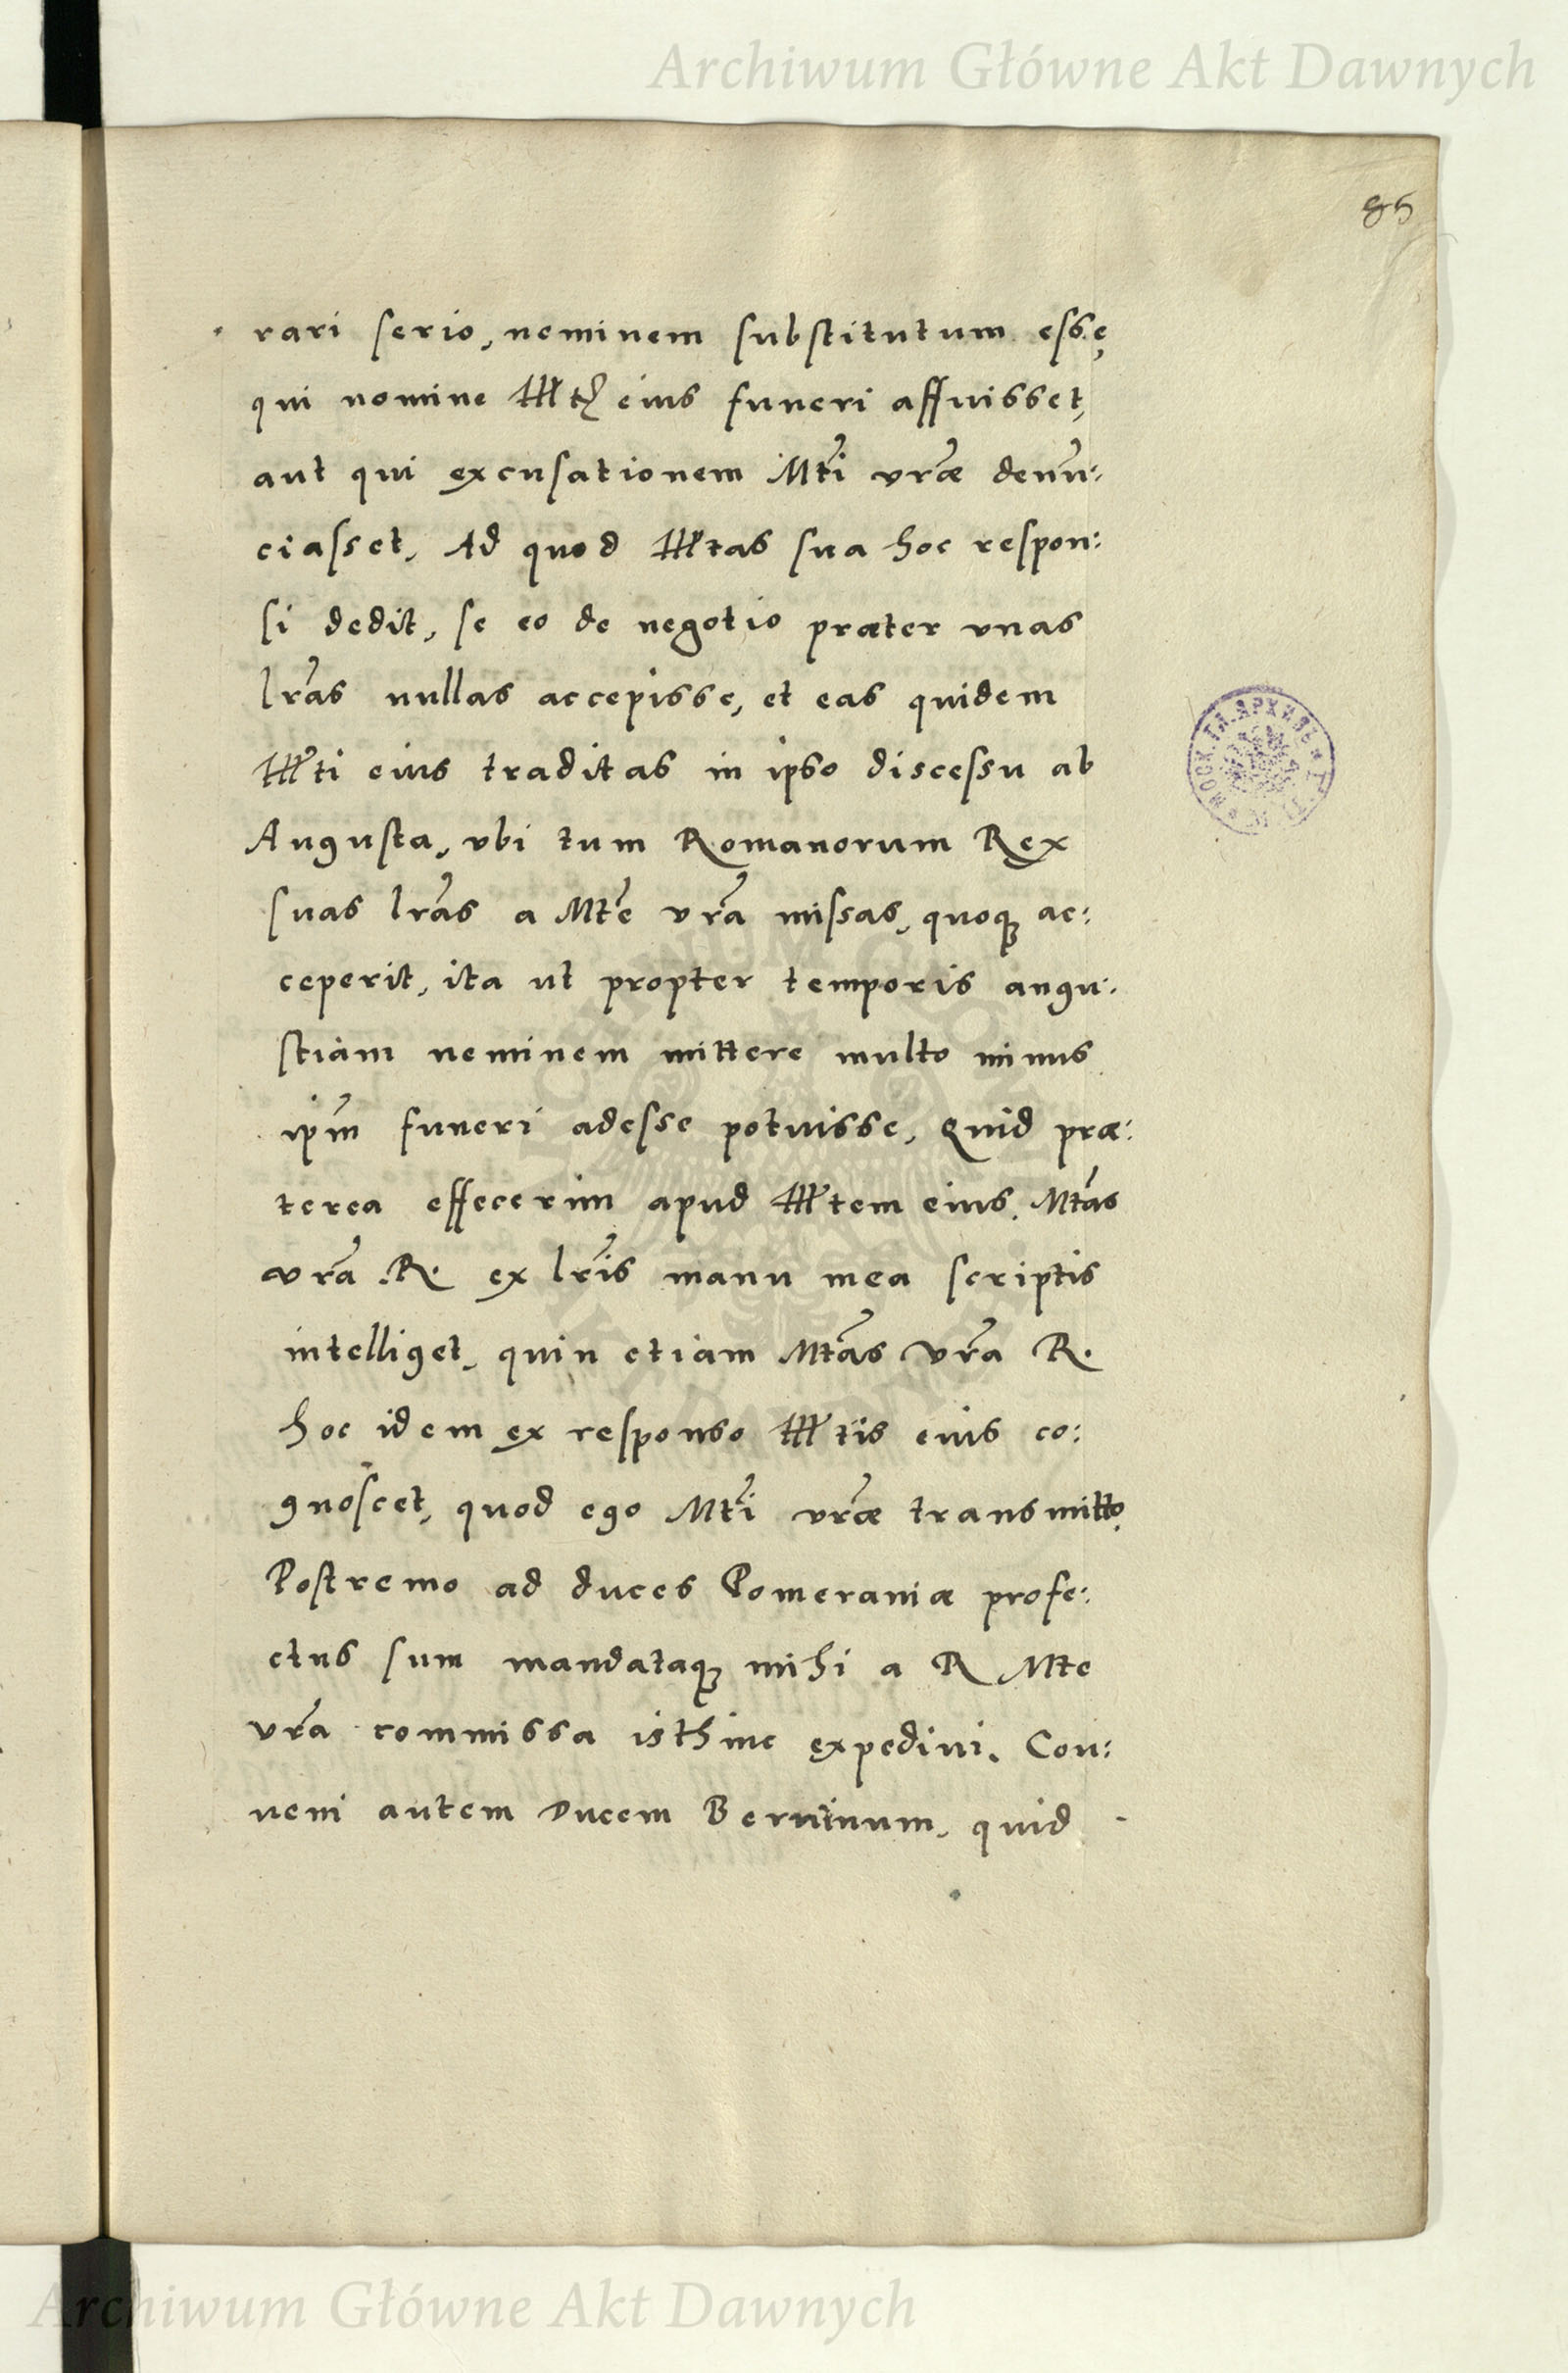 Archiwum Główne Akt Dawnych
85
rari serio, neminem substitutum esse,
qui nomine Mtis eius funeri affuisset,
aut qui excusationem Mti vrae denun:
ciasset. Ad quod Mtas sua hoc respon:
si dedit, se eo de negotio praeter vnas
lras nullas accepisse, et eas quidem
Mti eius traditas in ipso discessu ab
Augusta, vbi tum Romanorum Rex
suas lras a Mte vra missas, quoq ac:
ceperit, ita ut propter temporis angu:
stiam neminem mittere multo minus
ipm funeri adesse potuisse, Quid prae:
terea effecerim apud Mtem eius, Mtas
vra .R. ex lris manu mea scriptis
intelliget, quin etiam Mtas Vra R.
hoc idem ex responso Mtis eius co:
gnoscet, quod ego Mti vrae transmitto.
Postremo ad duces Pomeraniae profe:
ctus sum mandataq mihi a R Mte
vra commissa isthinc expediui. Con:
ueni autem Ducem Bernimum, quid
МОСК. ГЛ. АРХИВЪ
Archiwum Główne Akt Dawnych